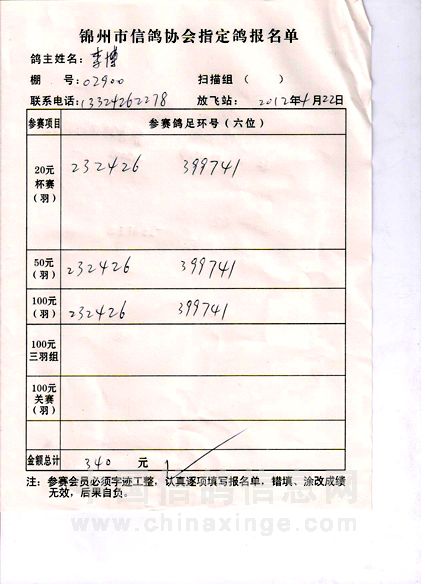 锦州市信鸽协会指定鸽报名单
鸽主姓名: 李博
棚 号: 02900 扫描组 ( )
联系电话: 13324262278 放飞站: 2012年4月22日
参赛项目 参赛鸽足环号（六位）
20元
杯赛
（羽）
232426 399741
50元
（羽）
232426 399741
100元
（羽）
232426 399741
100元
三羽组
100元
关赛
（羽）
金额总计 340 元
注: 参赛会员必须字迹工整, 认真逐项填写报名单, 错填、涂改成绩
无效, 后果自负。
中国信鸽信息网
www.chinaxinge.com